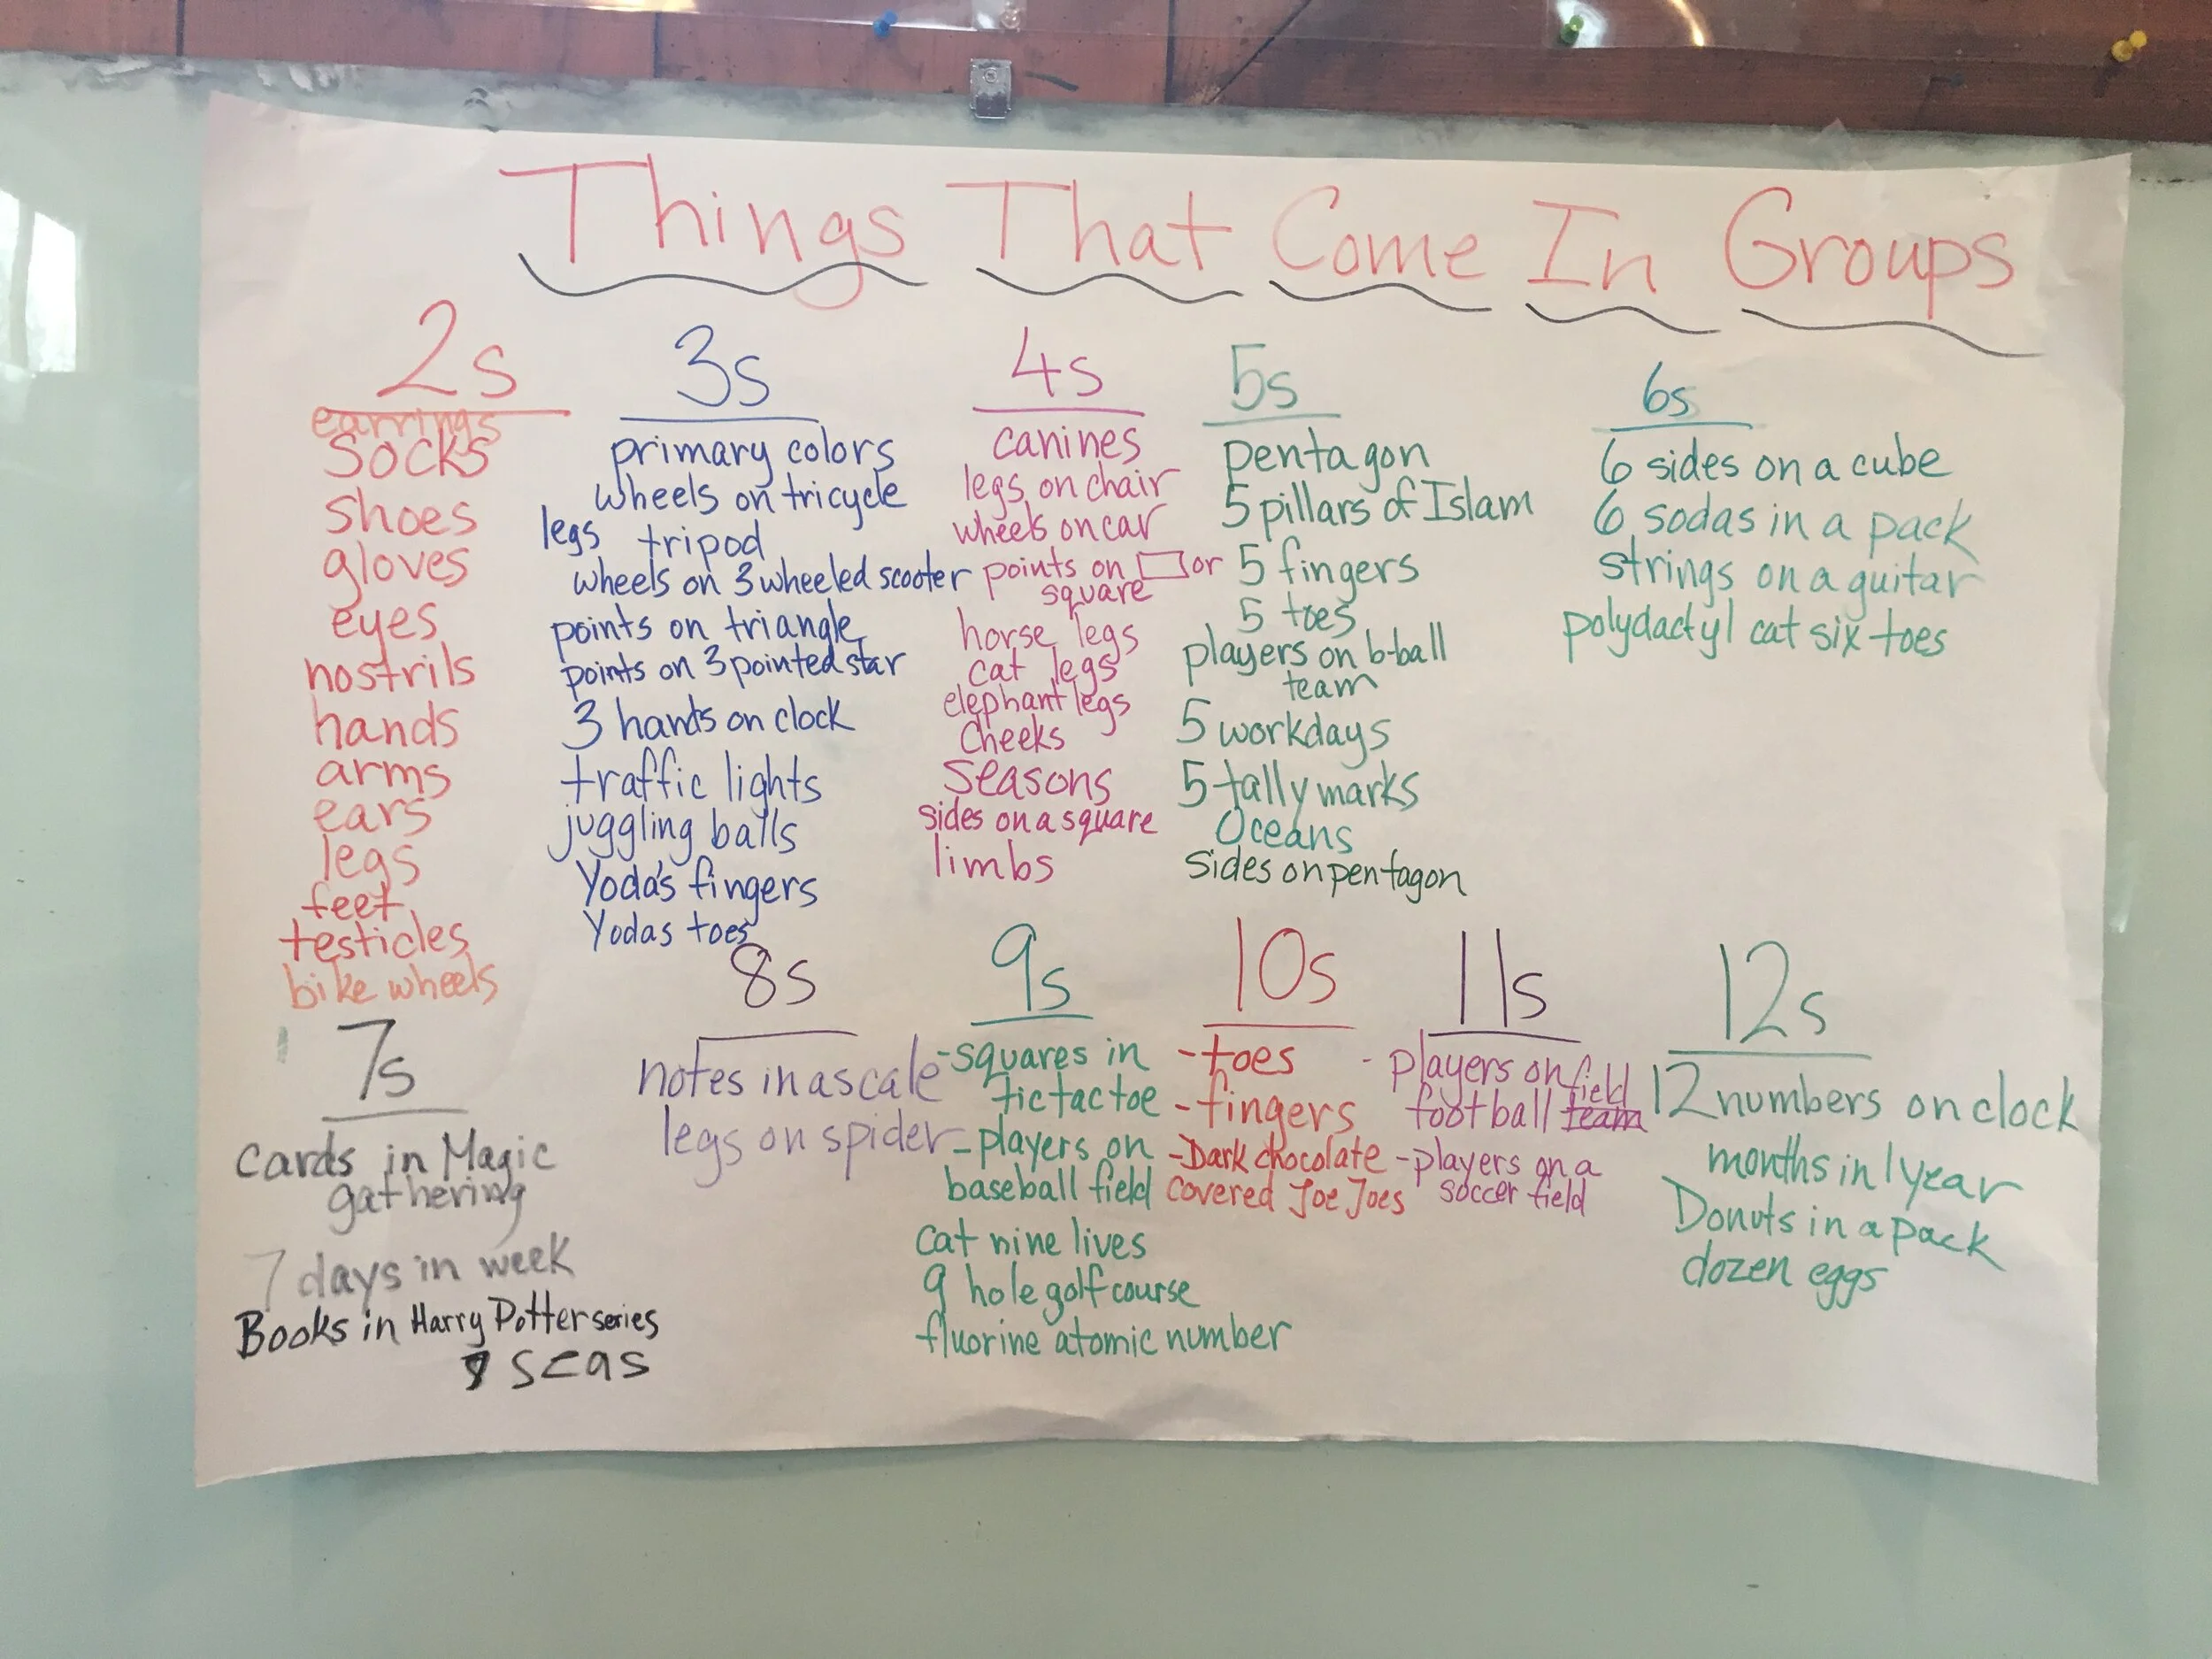 Things That Come In Groups
2s
earrings
socks
shoes
gloves
eyes
nostrils
hands
arms
ears
legs
feet
testicles
bike wheels
3s
primary colors
wheels on tricycle
legs tripod
wheels on 3 wheeled scooter
points on triangle
points on 3 pointed star
3 hands on clock
traffic lights
juggling balls
Yoda's fingers
Yodas toes
4s
canines
legs on chair
wheels on car
points on or
square
horse legs
cat legs
elephant legs
Cheeks
seasons
sides on a square
limbs
5s
pentagon
5 pillars of Islam
5 fingers
5 toes
players on b-ball
team
5 workdays
5 tally marks
Oceans
sides on pentagon
6s
6 sides on a cube
6 sodas in a pack
strings on a guitar
polydactyl cat six toes
7s
cards in Magic
gathering
7 days in week
Books in Harry Potter series
7 seas
8s
notes in a scale
legs on spider
9s
-squares in
tic tac toe
-players on
baseball field
cat nine lives
9 hole golf course
fluorine atomic number
10s
-toes
-fingers
-Dark chocolate
covered Joe Joes
11s
- players on field
football team
-players on a
soccer field
12s
12 numbers on clock
months in 1 year
Donuts in a pack
dozen eggs